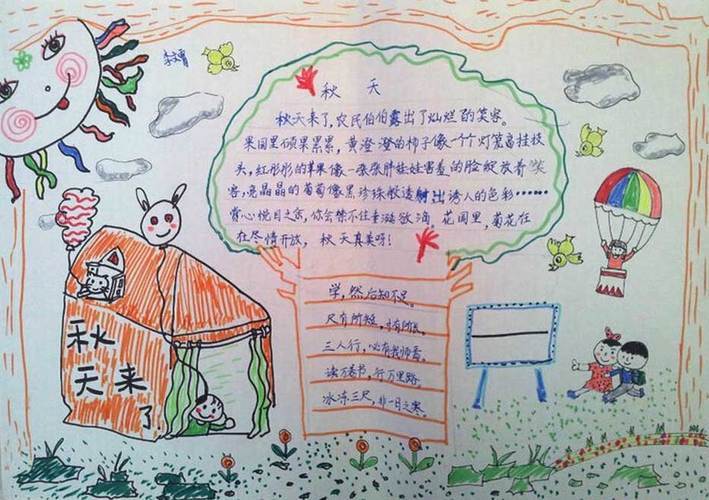 秋 天
秋天来了，农民伯伯露出了灿烂的笑容。
果园里硕果累累，黄澄澄的柿子像一个个灯笼高挂枝
头，红彤彤的苹果像一张张胖娃娃害羞的脸绽放着笑
容，亮晶晶的葡萄像黑珍珠般透射出诱人的色彩……
赏心悦目之余，你会禁不住垂涎欲滴 花园里，菊花在
在尽情开放，秋天真美呀！
学，然后知不足。
尺有所短，寸有所长。
三人行，必有我师焉。
读万卷书，行万里路。
冰冻三尺，非一日之寒。
秋
天来
了